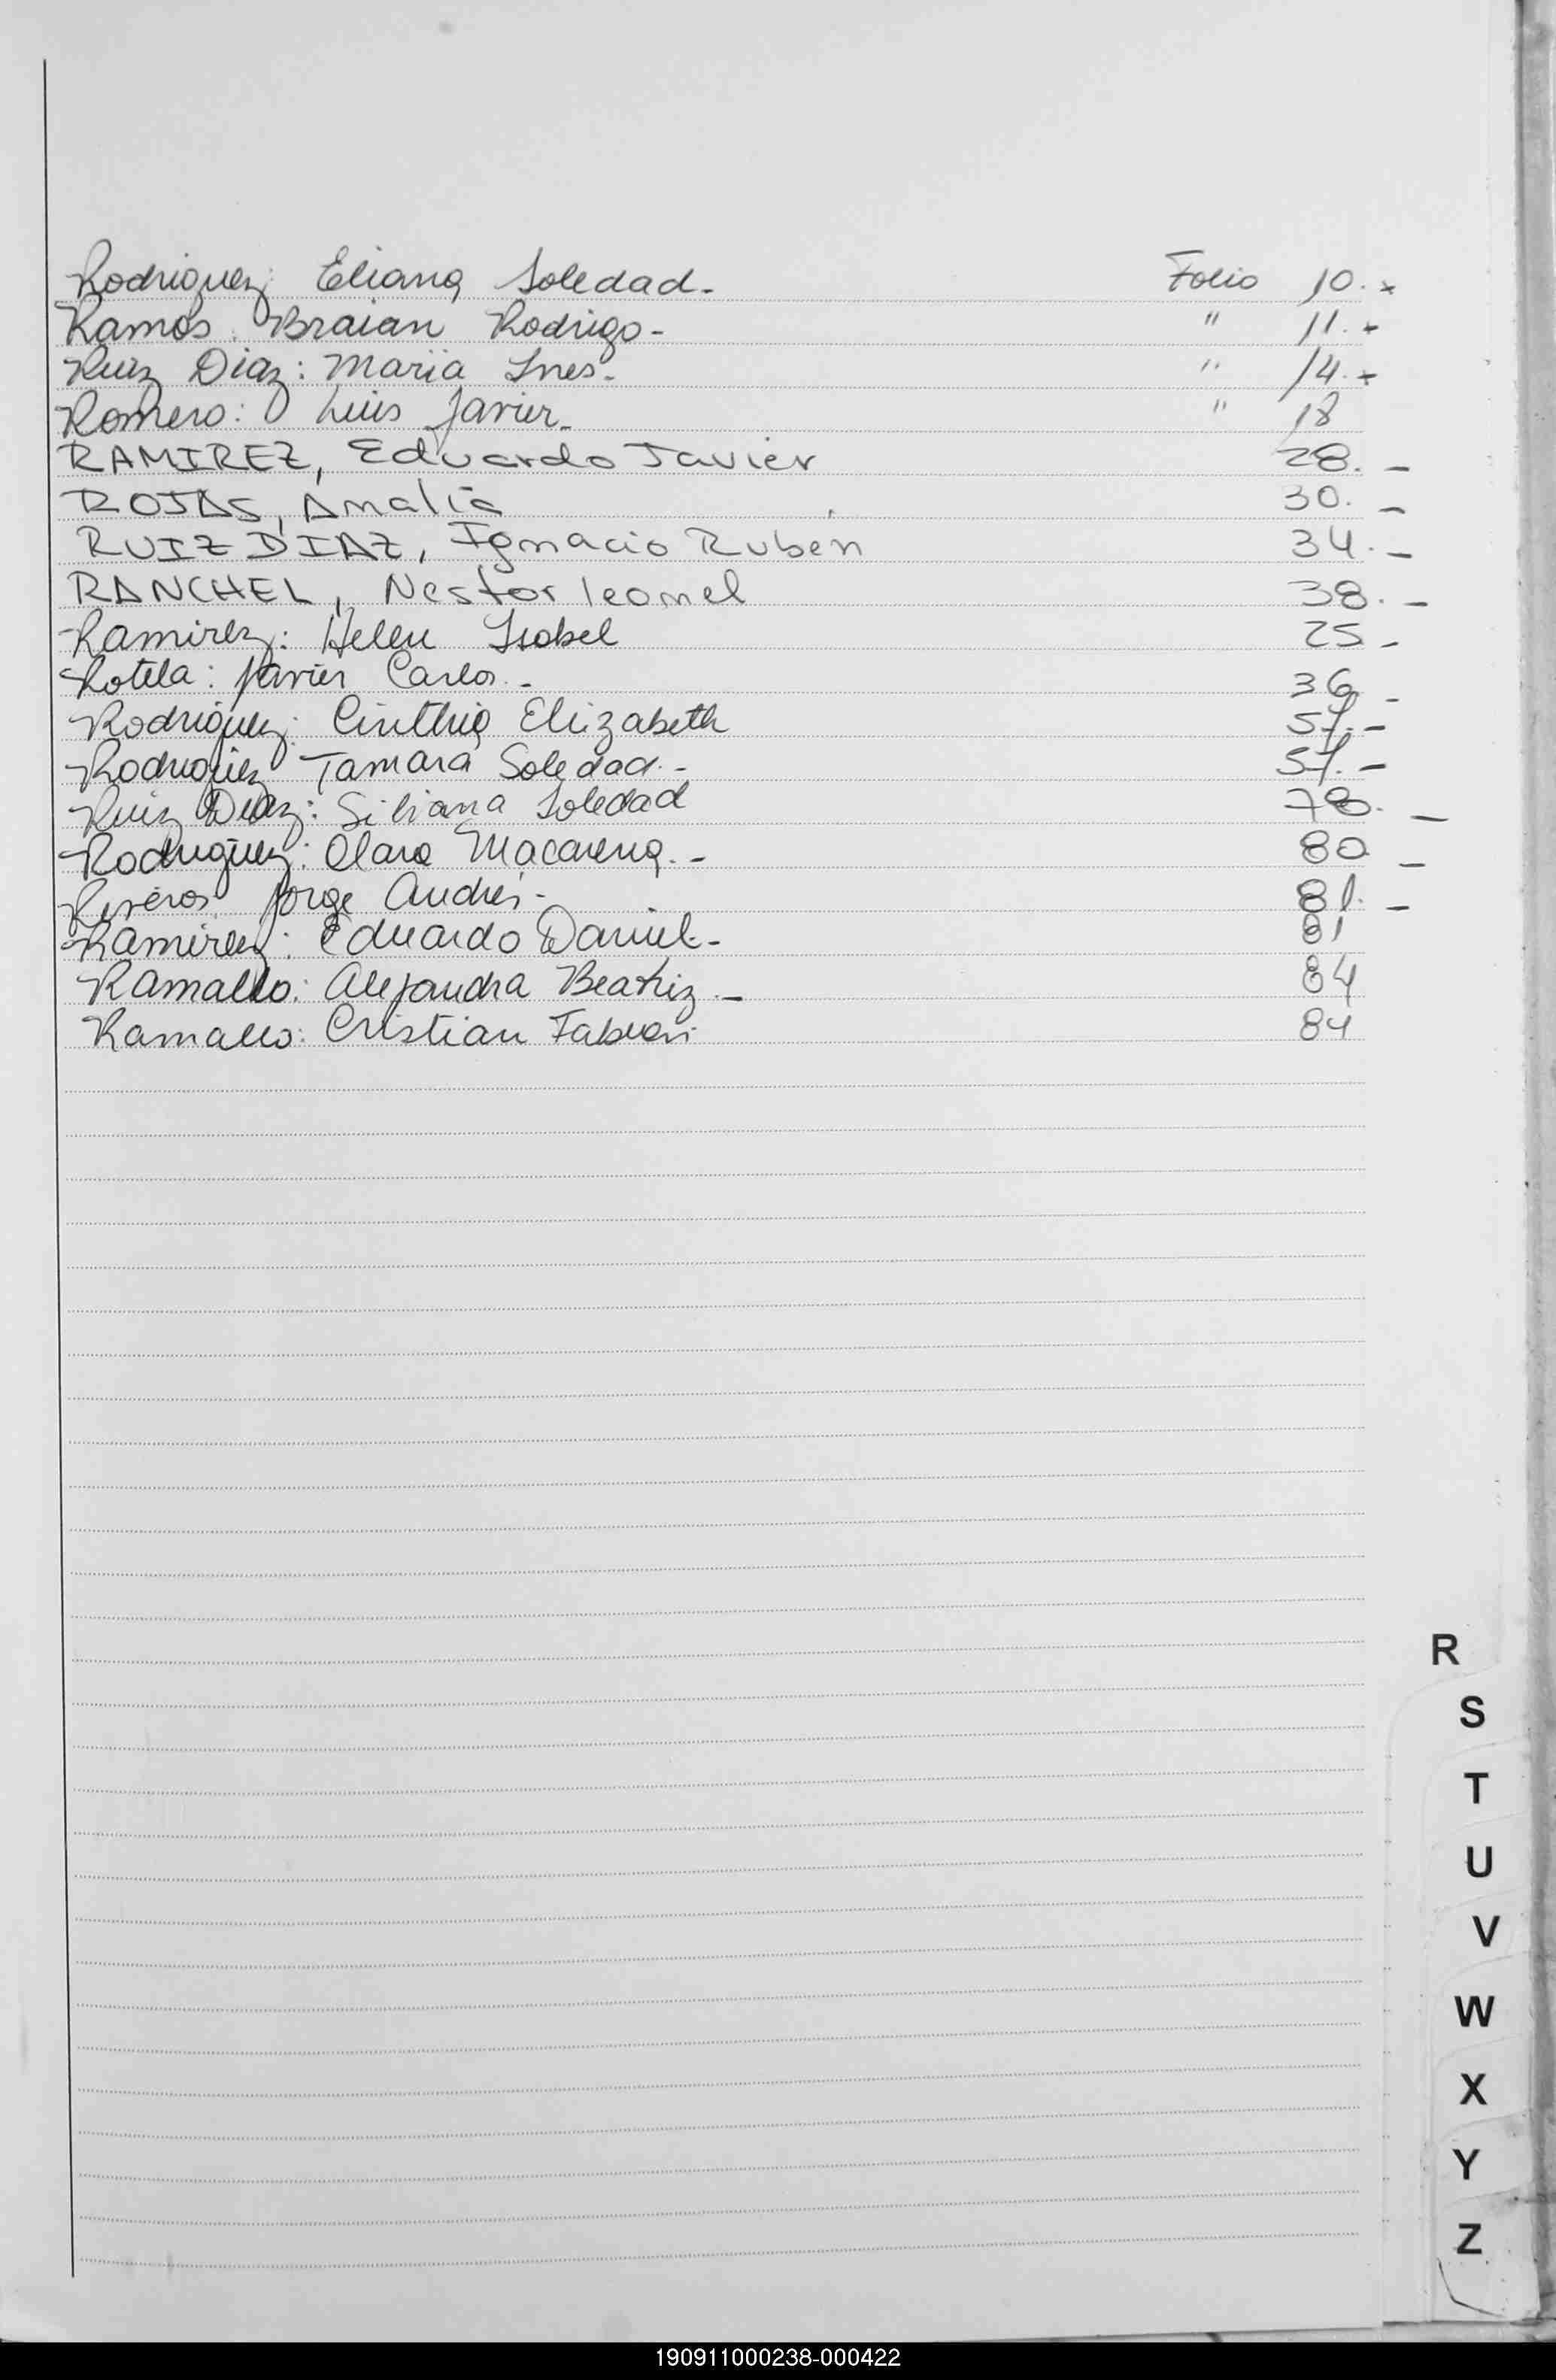 Rodriguez: Eliana Soledad.- Folio 10.-
Ramos: Braian Rodrigo- " 11.-
Ruiz Diaz: Maria Ines.- " 14.-
Romero: Luis Javier.- " 18
RAMIREZ, Eduardo Javier 28.-
ROJAS, Amalia 30.-
RUIZ DIAZ, Ignacio Rubén 34.-
RANCHEL, Nestor leonel 38.-
Ramirez: Helen Isabel 25-
Rotela: Javier Carlos.- 36-
Rodriguez: Cinthia Elizabeth 57.-
Rodriguez Tamara Soledad.- 57.-
Ruiz Diaz: Siliana Soledad 78.-
Rodriguez: Clara Macarena.- 80-
Riveros Jorge Andres- 81.-
Ramirez: Eduardo Daniel- 81
Ramallo: Alejandra Beatriz.- 84
Ramallo: Cristian Fabian 84
R
S
T
U
V
W
X
Y
Z
190911000238-000422